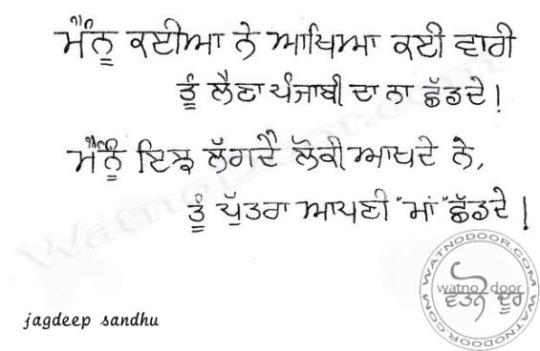 ਮੈਨੂੰ ਕਈਆ ਨੇ ਆਖਿਆ ਕਈ ਵਾਰੀ
ਤੂੰ ਲੈਣਾ ਪੰਜਾਬੀ ਦਾ ਨਾ ਛੱਡਦੇ!
ਮੈਨੂੰ ਇਝ ਲੱਗਦੈ ਲੋਕੀ ਆਖਦੇ ਨੇ,
ਤੂੰ ਪੁੱਤਰਾ ਆਪਣੀ "ਮਾਂ" ਛੱਡਦੇ!
jagdeep sandhu
WATNODOOR.COM WATNODOOR.COM
watno door
ਵਤਨੋਂ ਦੂਰ